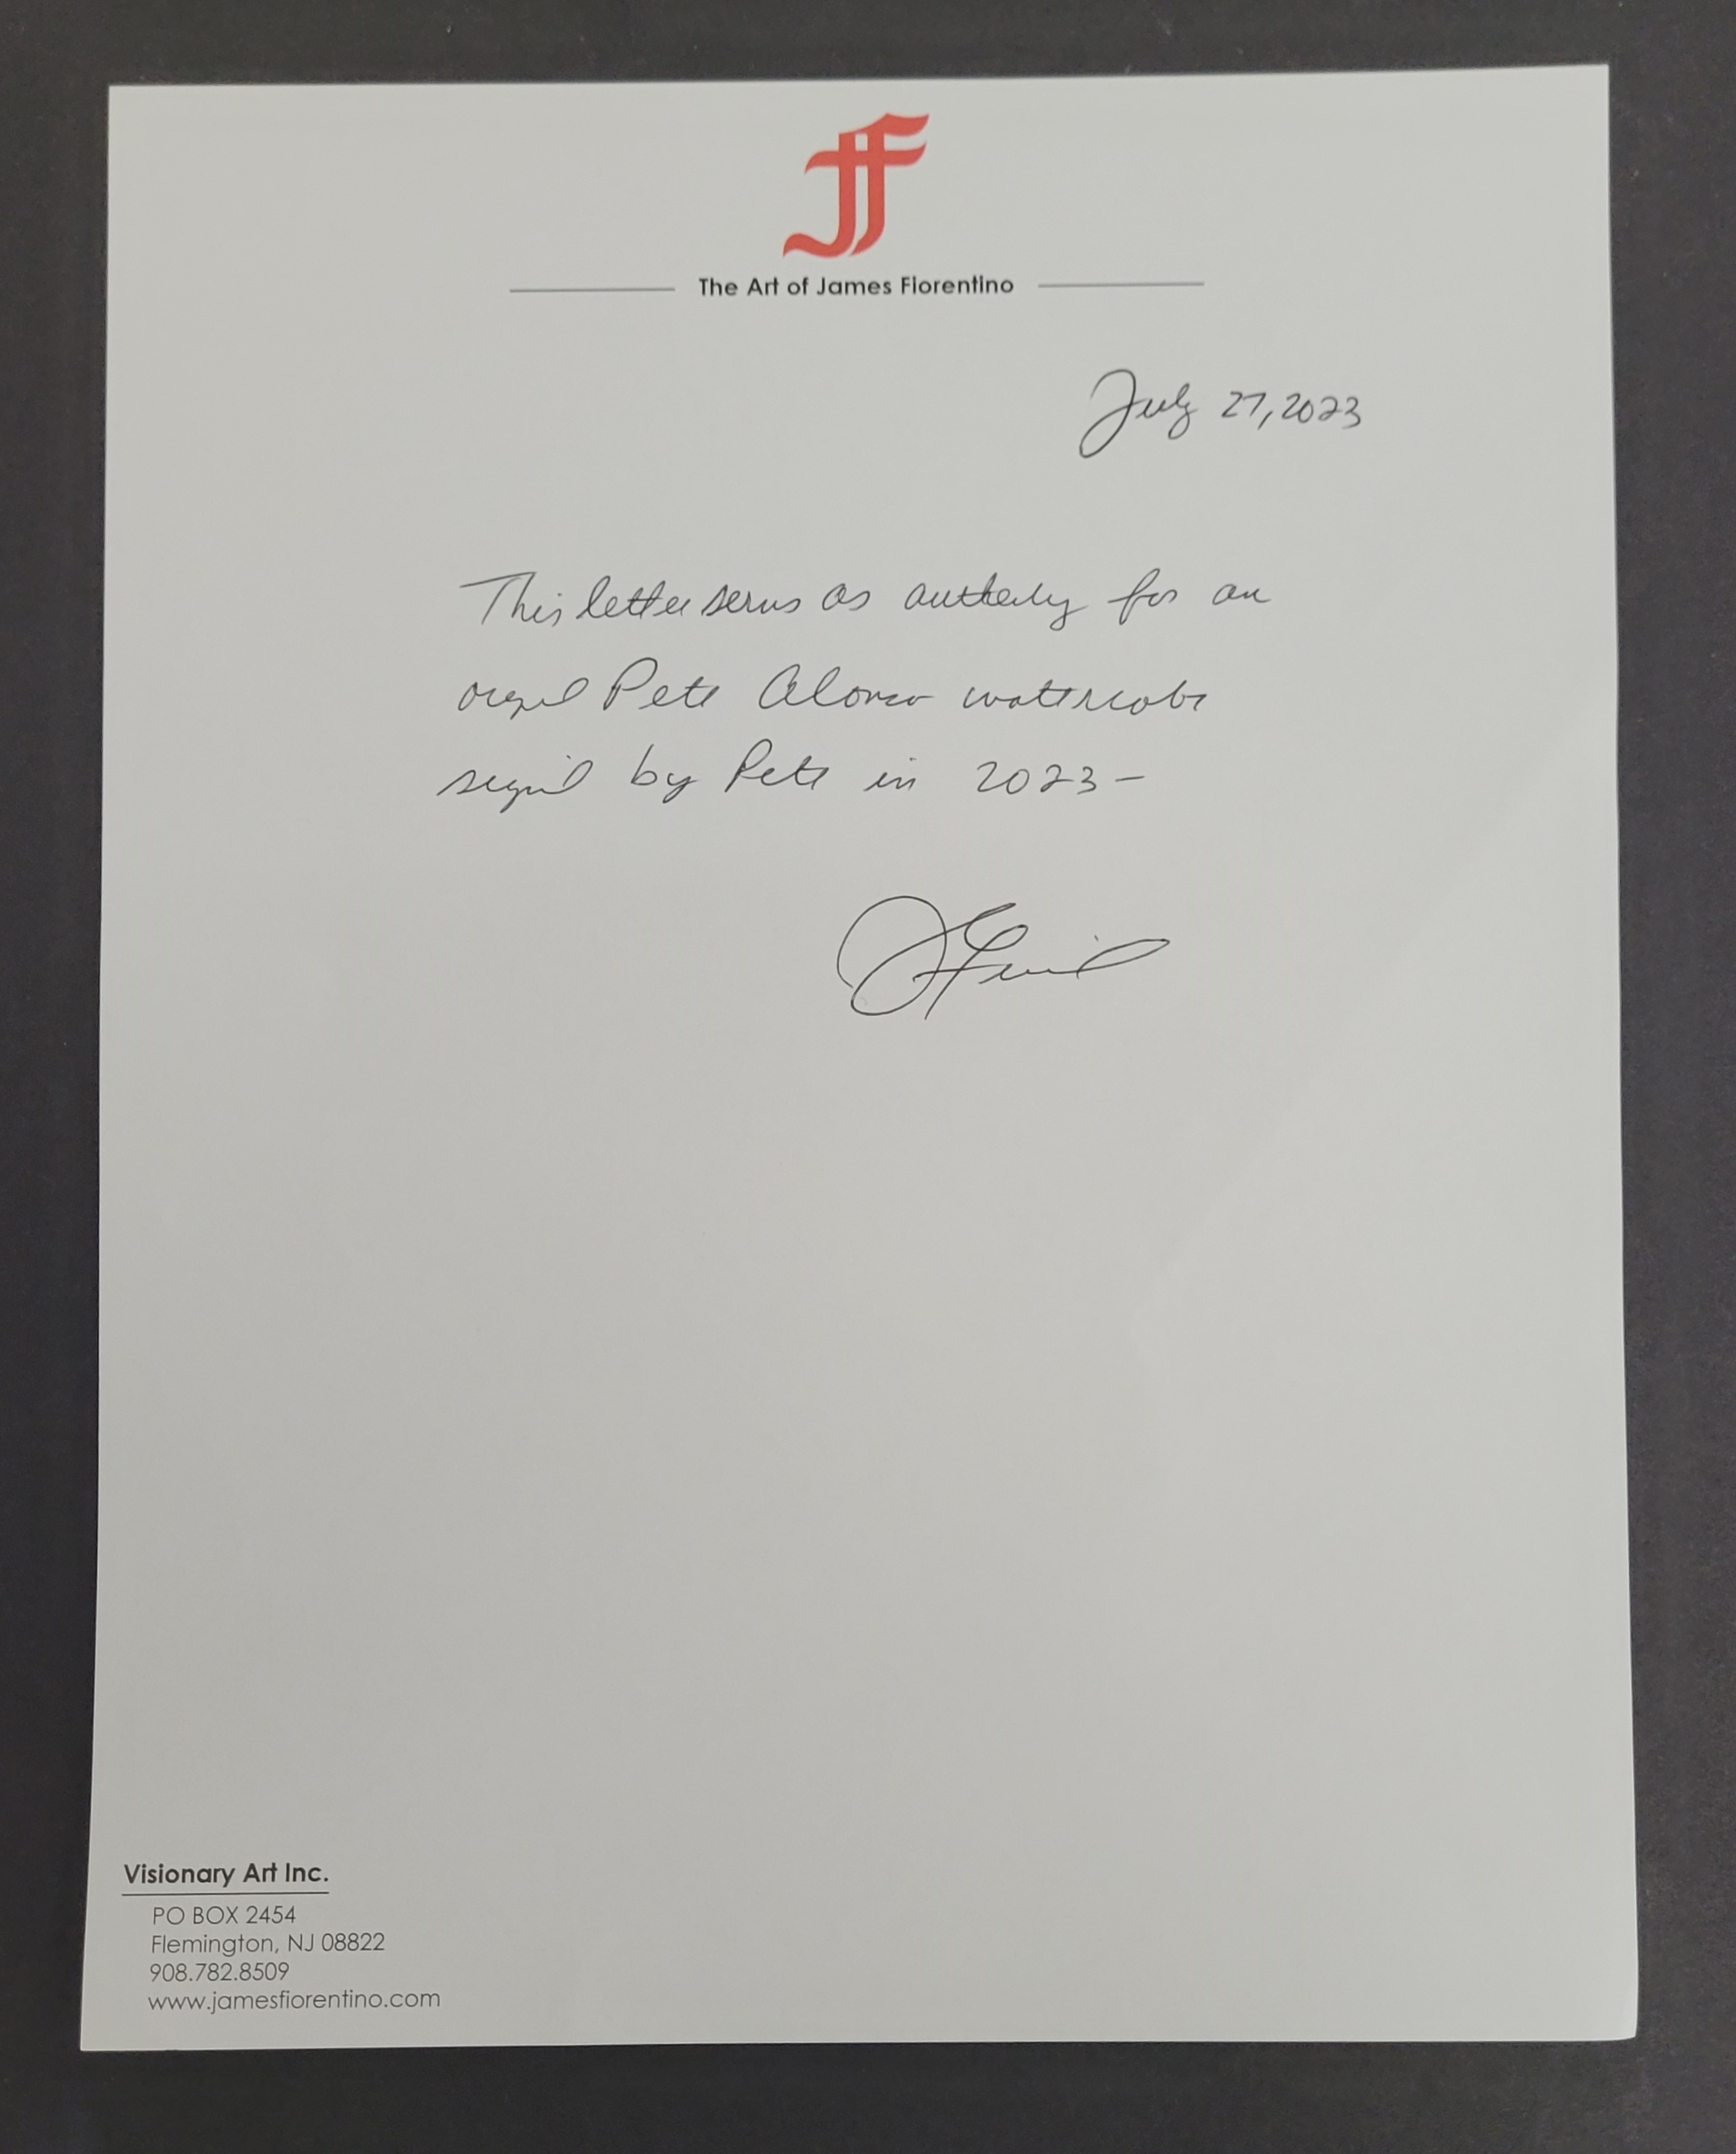 JF
The Art of James Fiorentino
July 27, 2023
This letter serves as authenticity for an
original Pete Alonso watercolor
signed by Pete in 2023 -
Visionary Art Inc.
PO BOX 2454
Flemington, NJ 08822
908.782.8509
www.jamesfiorentino.com